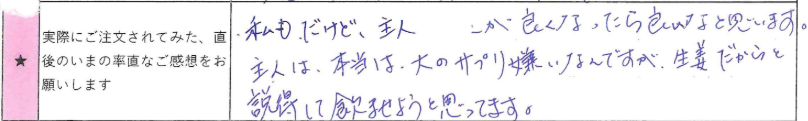 ★
実際にご注文されてみた、直
後のいまの率直なご感想をお
願いします
私もだけど、主人 が良くなったら良いなと思います。
主人は、本当は、大のサプリ嫌いなんですが、生姜だからと
説得して飲ませようと思ってます。